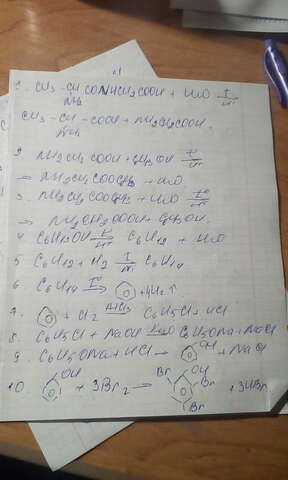 CH3-CH CONHCH2COOH + H2O t° H+
NH2
CH3-CH-COOH + NH2CH2COOH
NH2
2 NH2CH2COOH + C2H5OH t° H+
→ NH2CH2COOC2H5 + H2O
3. NH2CH2COOC2H5 + H2O t° H+
→ NH2CH2COOH + C2H5OH.
4 C6H13OH C6H12 + H2O
5 C6H12 + H2 C6H14
6 C6H14 t° → + 4H2↑
7. + Cl2 AlCl3 C6H5Cl + HCl
8. C6H5Cl + NaOH C6H5ONa + NaCl
9. C6H5ONa + HCl → OH + NaCl
10. OH + 3Br2 → Br OH Br Br + 3HBr